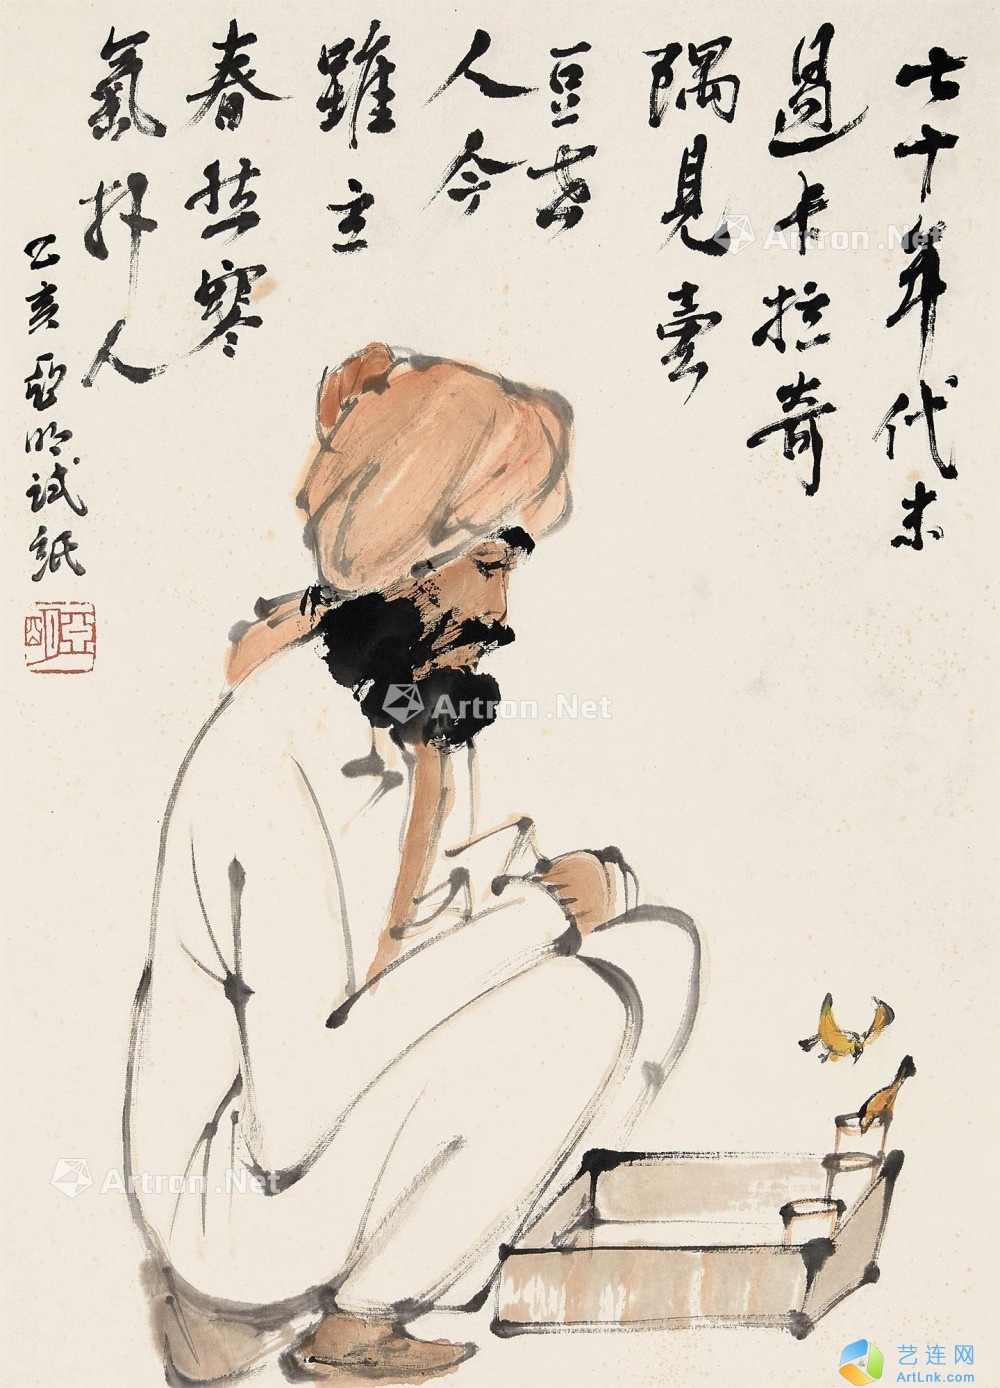 七十年代末
過卡拉奇
隅見賣
豆老
人今
雖立
春然寒
氣扑人
乙亥亞明試紙
亞明
Artron.Net
Artron.Net
Artron.Net
艺连网
ArtLnk.com